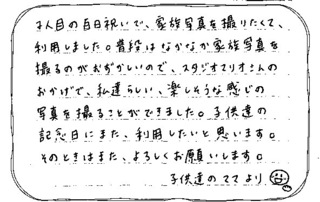 2人目の百日祝いで、家族写真を撮りたくて、
利用しました。普段はなかなか家族写真を
撮るのがむずかしいので、スタジオマリオさんの
おかげで、私達らしい、楽しそうな感じの
写真を撮ることができました。子供達の
記念日にまた、利用したいと思います。
そのときはまた、よろしくお願いします。
子供達のママより